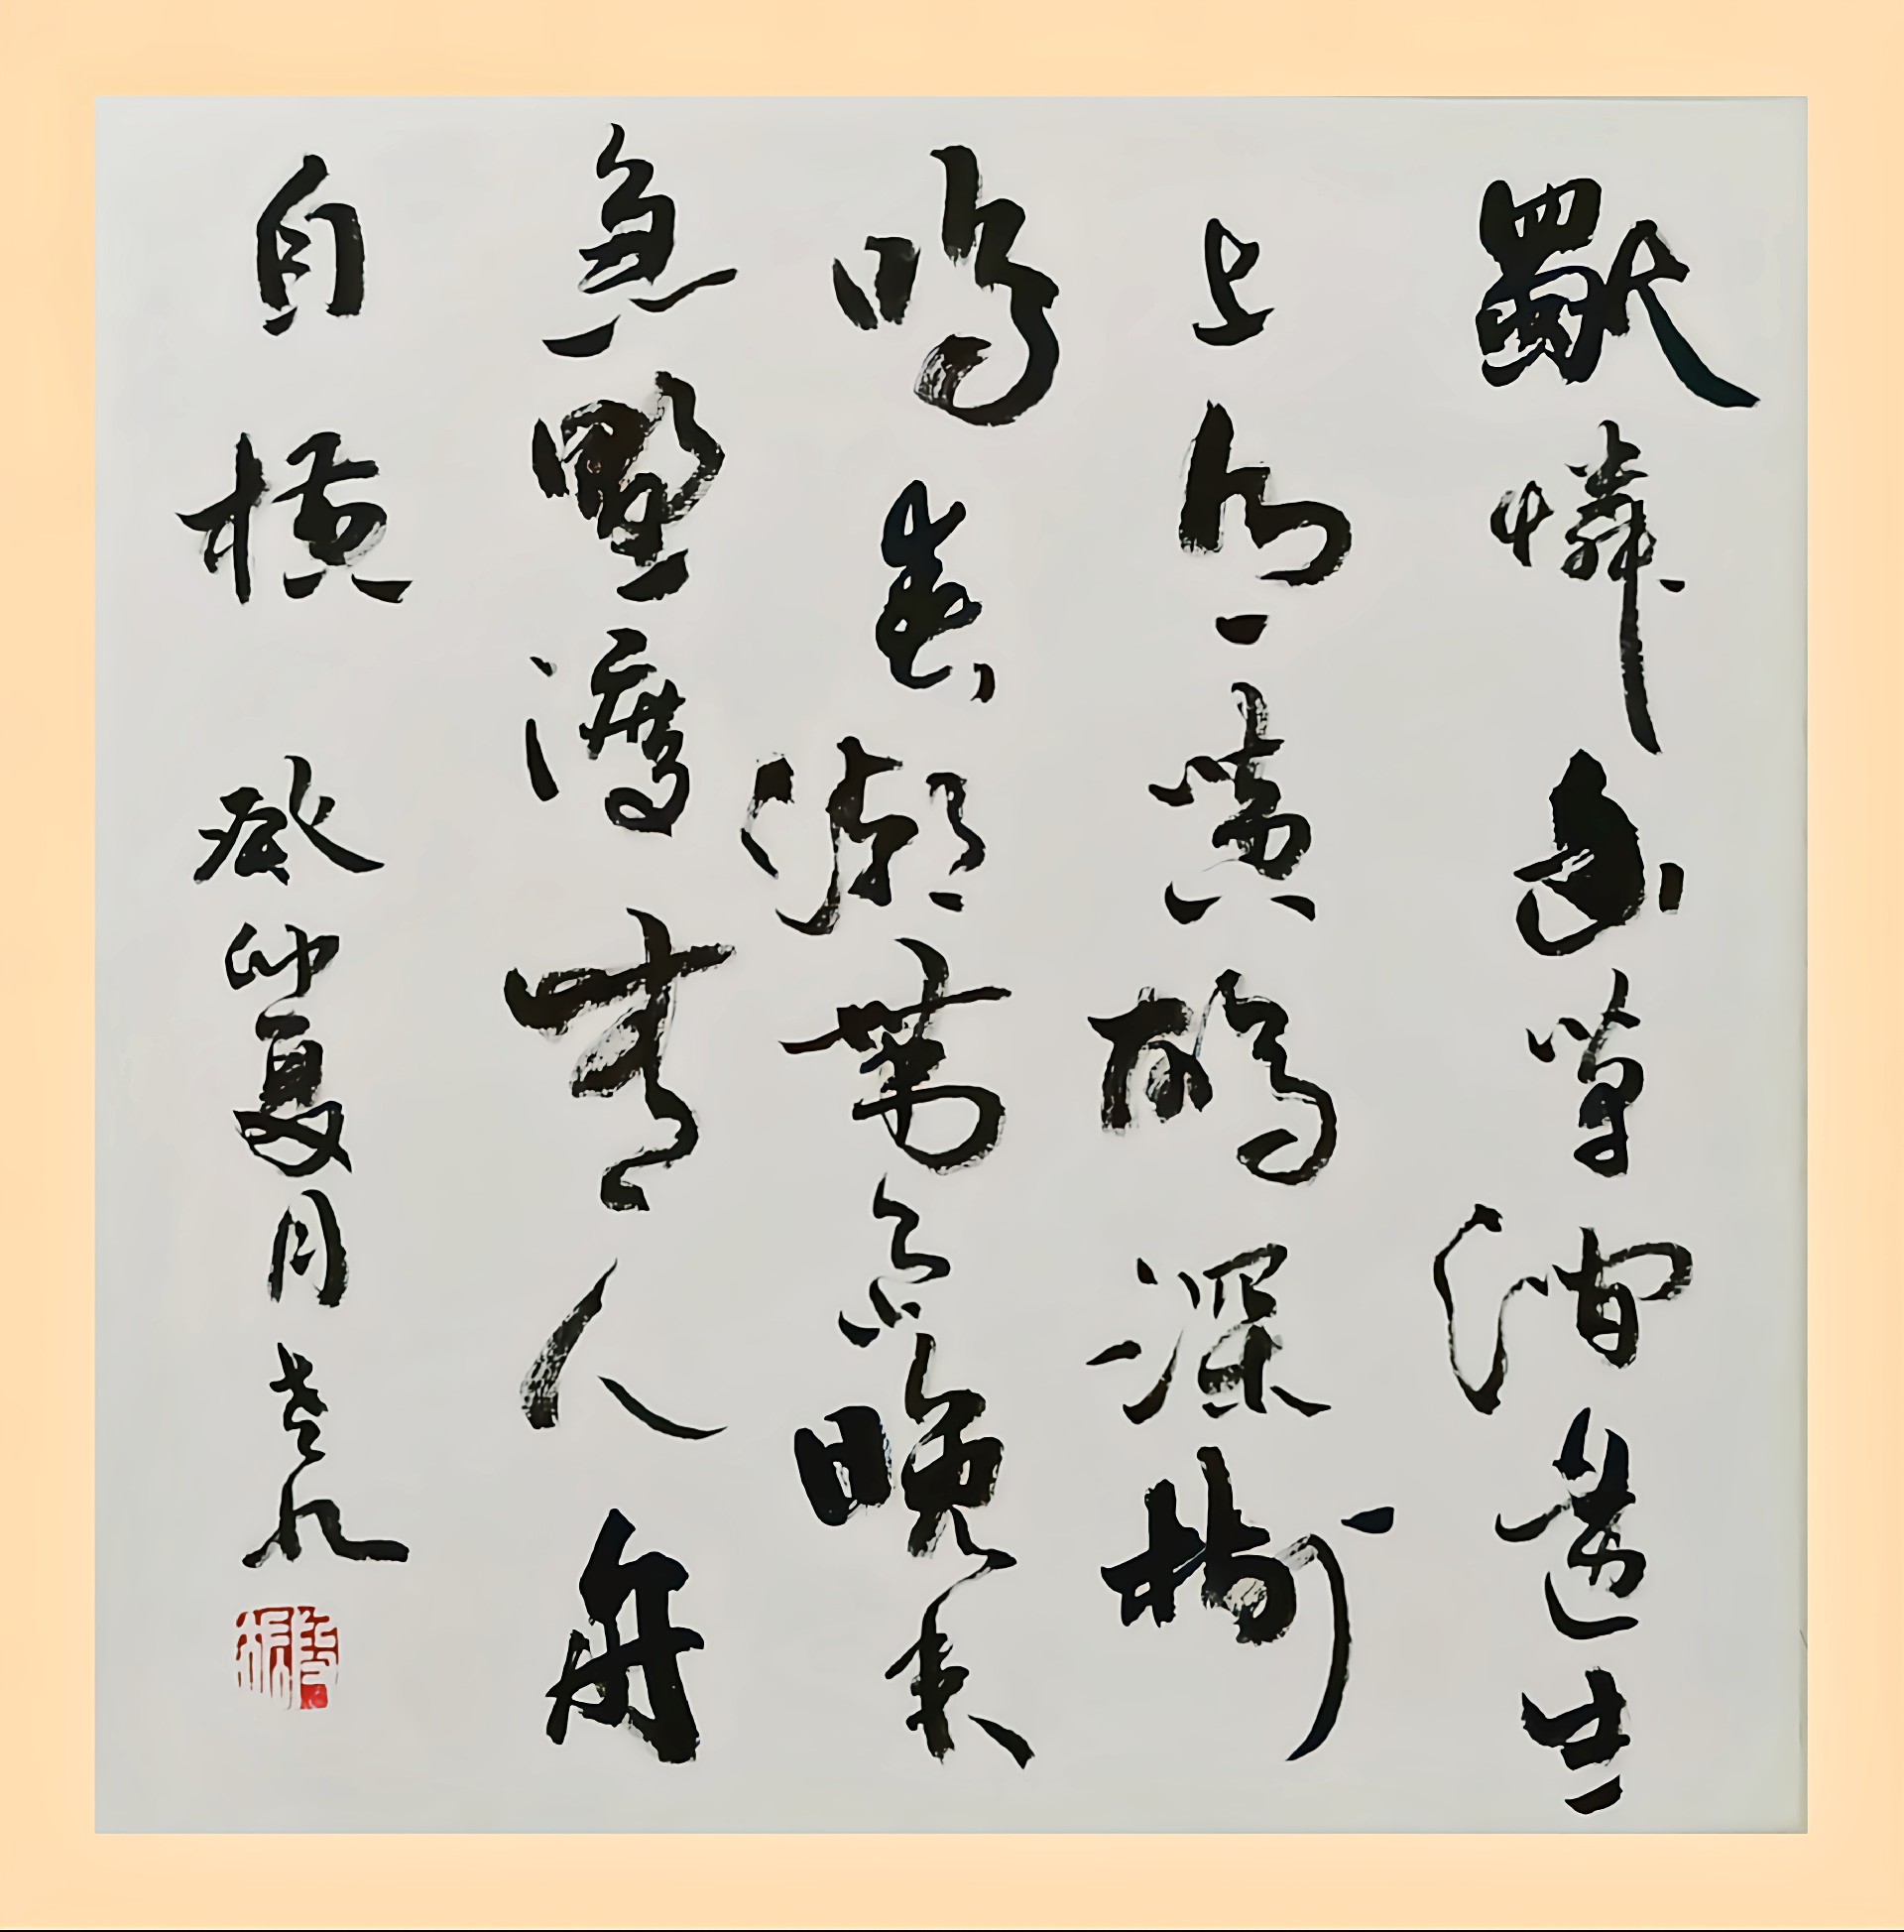 獨憐幽草澗邊生
上有黃鸝深樹
鳴春潮帶雨晚來
急野渡無人舟
自橫 癸卯夏月